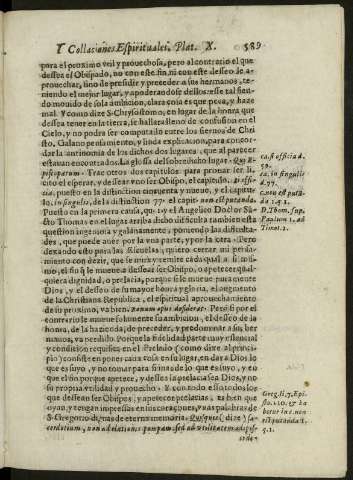 Y Collaciones Espirituales. Plat. X. 589
para el proximo vtil y prouechosa, pero al contrario el que
dessea el Obispado, no con este fin, ni con este desseo de a-
prouechar, sino de presidir y preceder a sus hermanos, te-
niendo el mejor lugar, y apoderandose dellos: este tal sien-
do mouido de sola ambicion, clara cosa es que peca, y haze
mal. Y como dize S. Chrysostomo, en lugar de la honra que
dessea tener en la tierra, se hallara lleno de confusion en el
Cielo, y no podra ser computado entre los sieruos de Chri-
sto. Galano pensamiento, y linda explicacion, para concor-
dar la antinomia de los dichos dos lugares, que al parecer
estauan encontrados. La glossa del sobredicho lugar. Qui E-
piscopatum. Trae otros dos capitulos para prouar ser li-
cito el esperar, y dessear vno ser Obispo, el capitulo. Si offi-
cia, puesto en la distinccion cinquenta y nueue, y el capitu-
lo, in singulis, de la distinccion 77. el capit. non est putanda.
Puesto en la primera causa, q. 1. y el Angelico Doctor S. San-
cto Thomas en el lugar arriba dicho difficulta tambien esta
question ingeniosa y galanamente, poniendo las dificulta-
des, que puede auer por la vna parte, y por la otra. Pero
dexando esto para las Escuelas, quiero cerrar mi pensa-
miento con dezir, que se mire y remire cada qual a si mis-
mo, el fin q̃ le mueue a dessear ser Obispo, o apetecer qual-
quiera dignidad, o prelacia, porque si le mueue puramente
Dios, y el desseo de su mayor honra y gloria, el augmento
de la Christiana Republica, el espiritual aprouechamiento
de su proximo, va bien. Bonum opus desiderat. Pero si por el
contrario le mueue solamente su ambicion, el desseo de la
honra, de la hazienda, de preceder, y predominar a sus her-
manos, va perdido. Porque la fidelidad parte muy essencial
y condicion requisita en el Prelado (como dixe al princi-
pio) consiste en poner cada cosa en su lugar, en dar a Dios lo
que es suyo, y no tomar para si nada de lo que es suyo, y en
que el fin porque apetece, y dessea la prelacia sea Dios, y no
su propria vtilidad y prouecho. Y con todo esso los que
dessean ser Obispos, y apetecer prelacias, es bien que
oyan, y tengan impressas en sus coraçones, vnas palabras de
S. Gregorio, dignas de eterna memoria. Quisquis (dize) sa-
cerdotium, non ad elationis pompam, sed ad vtilitatem adipisci
ca. si officia d.
59.
ca. in singulis
d. 77.
c. non est puta
da 1. q. 1.
D. Thom. sup.
Paulum 1. ad
Timot. 1.
Greg. li. 7. Epi
sto. 110. et ha
betur in c. non
est putanda 1.
q. 1.